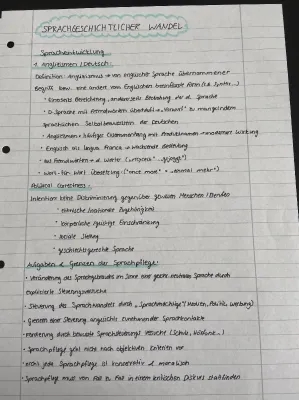 SPRACHGESCHICHTLICHER WANDEL
Sprachentwicklung
1. Anglizismen / Deutsch:
Definition: Anglizismus → von englischer Sprache übernommener
Begriff bzw. eine andere vom Englischen beeinflusste Form
• Einerseits Bereicherung, andererseits Bedrohung der d. Sprache
• D. Sprache mit Fremdwörtern überhäuft → Verweis zu mangelndem
sprachlichen Selbstbewusstsein der Deutschen
• Anglizismen: häufiger Zusammenhang mit Produktnamen → moderner Wirkung
• Englisch als lingua franca → wachsende Bedeutung
• aus Fremdwörtern → d. Wörter
• Wort-für-Wort Übersetzung: ("once more" = "einmal mehr")
Political Correctness:
Intention: keine Diskriminierung gegenüber gewissen Menschen / Gruppen
• ethnische / nationale Zugehörigkeit
• körperliche / geistige Einschränkung
• soziale Stellung
• geschlechtsgerechte Sprache
Aufgaben & Grenzen der Sprachpflege:
• Veränderung des Sprachgebrauchs im Sinne einer gepflegten Sprache durch
explizite Steuerungsversuche
• Steuerung des Sprachwandels durch „Sprachmächtige" (Medien, Politik, Werbung)
• Grenzen einer Steuerung angesichts zunehmender Sprachkontakte
• Förderung durch bewusste Sprachsteuerungs Versuche
• Sprachpflege geht nicht nach objektiven Kriterien vor
• nicht jede Sprachpflege ist konservativ &
• Sprachpflege muss von Fall zu Fall in einem kritischen Diskurs stattfinden